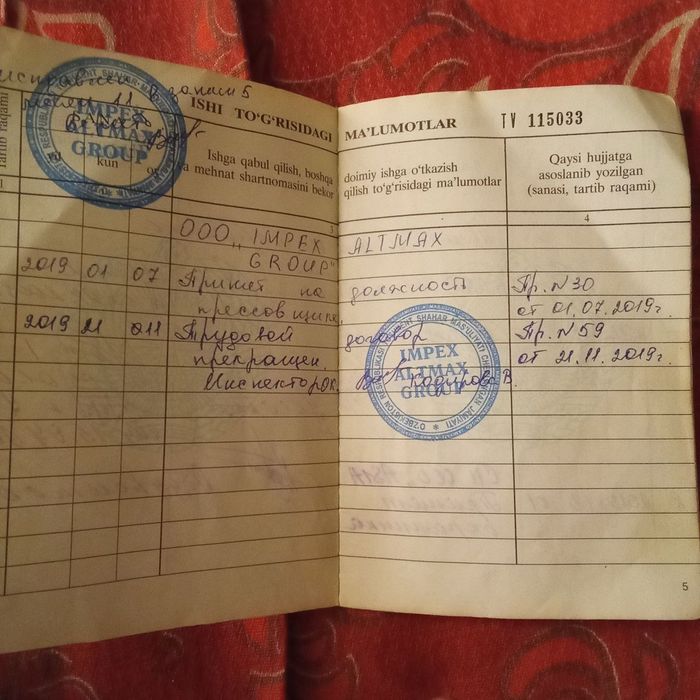 в записи 5
ISHI TO‘G‘RISIDAGI MA’LUMOTLAR TV 115033
Tartib raqami
kun
Ishga qabul qilish, boshqa doimiy ishga o‘tkazish
a mehnat shartnomasini bekor qilish to‘g‘risidagi ma’lumotlar
Qaysi hujjatga
asoslanib yozilgan
(sanasi, tartib raqami)
1 3 4
ООО „IMPEX ALTMAX
GROUP“
2019 01 07 Принят на должность Пр. N 30
прессовщика. от 01.07.2019г.
2019 21 011 Трудовой договор Пр. N 59
прекращен. от 21.11.2019г.
Инспектор ОК. Кадирова В.
IMPEX
ALTMAX
GROUP
IMPEX
ALTMAX
GROUP
5